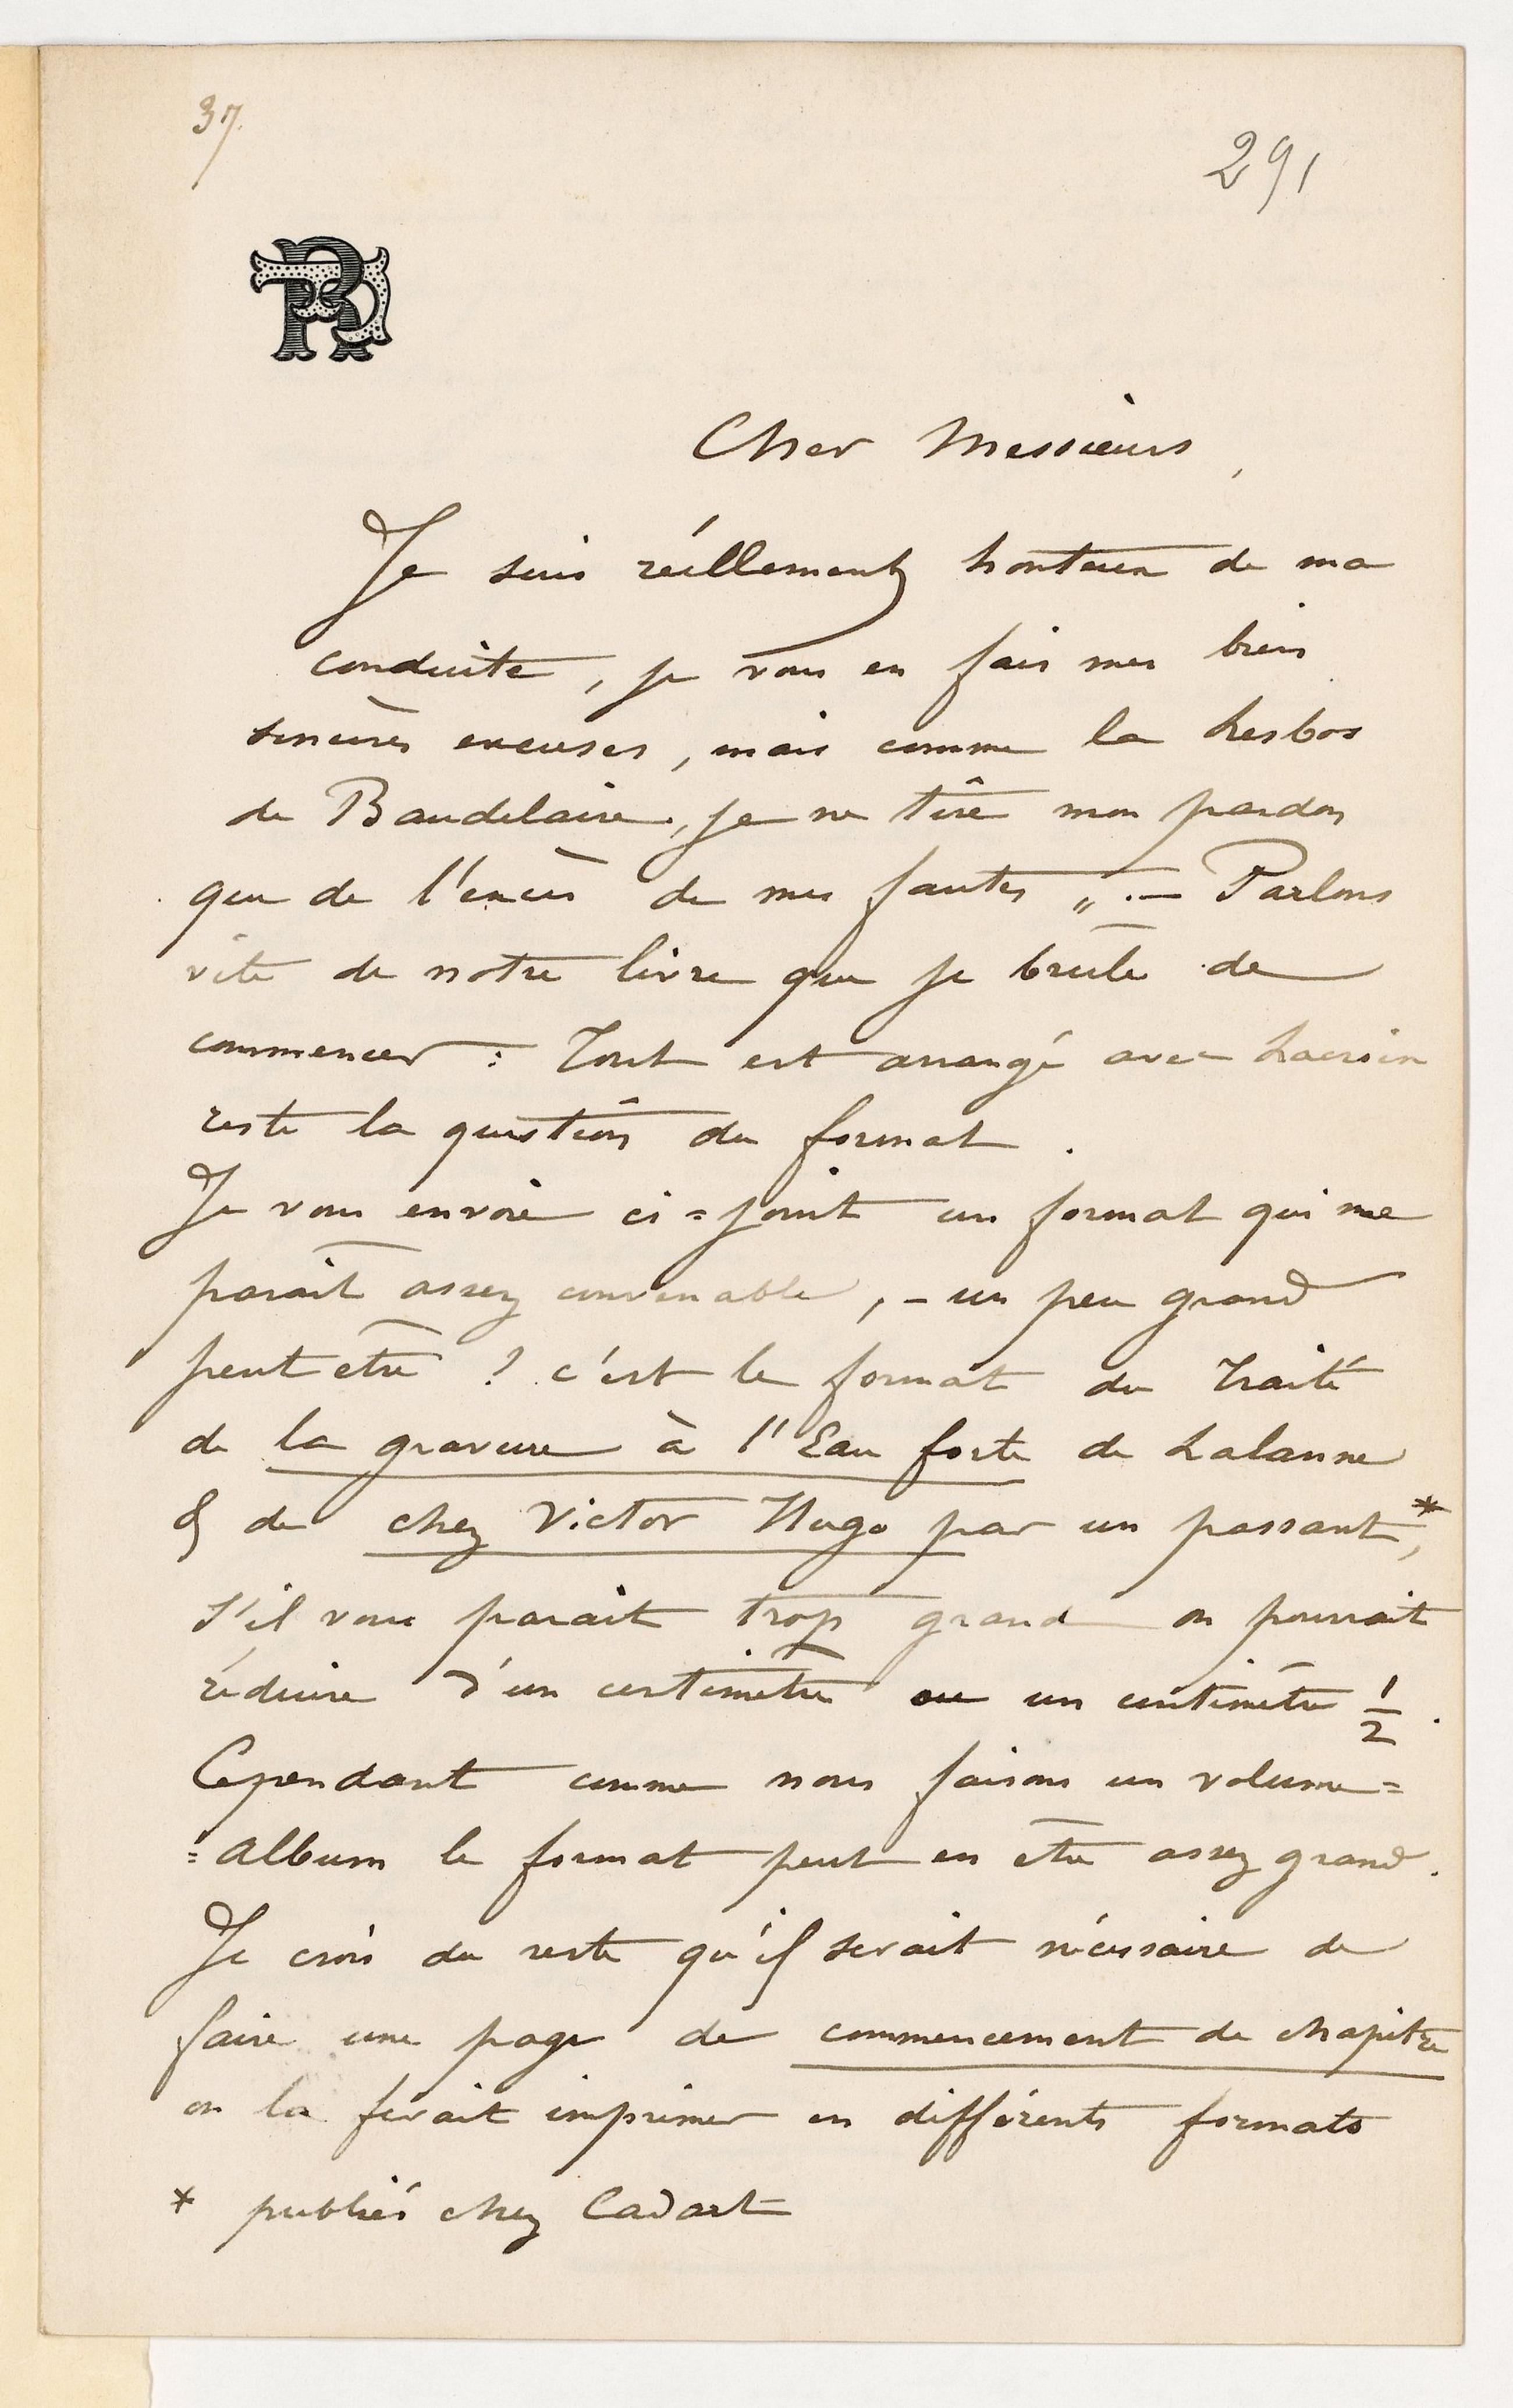 37.
291
RD
Cher Messieurs,
Je suis réellement honteux de ma
conduite, je vous en fais mes bien
sincères excuses, mais comme la Lesbos
de Baudelaire, je ne tire mon pardon
que de l'excès de mes fautes „ . — Parlons
vite de notre livre que je brule de
commencer : Tout est arrangé avec Lacroix
reste la question du format .
Je vous envoie ci=joint un format qui me
parait assez convenable, – un peu grand
peut etre ? c'est le format du Traité
de la gravure à l'Eau forte de Lalanne
& de chez Victor Hugo par un passant*,
s'il vous parait trop grand on pourrait
réduire d'un centimètre ou un centimètre 1/2 .
Cependant comme nous faisons un volume=
=album le format peut en être assez grand.
Je crois du reste qu'il serait nécessaire de
faire une page de commencement de chapitre
on la ferait imprimer en différents formats
* publiés chez Cadart